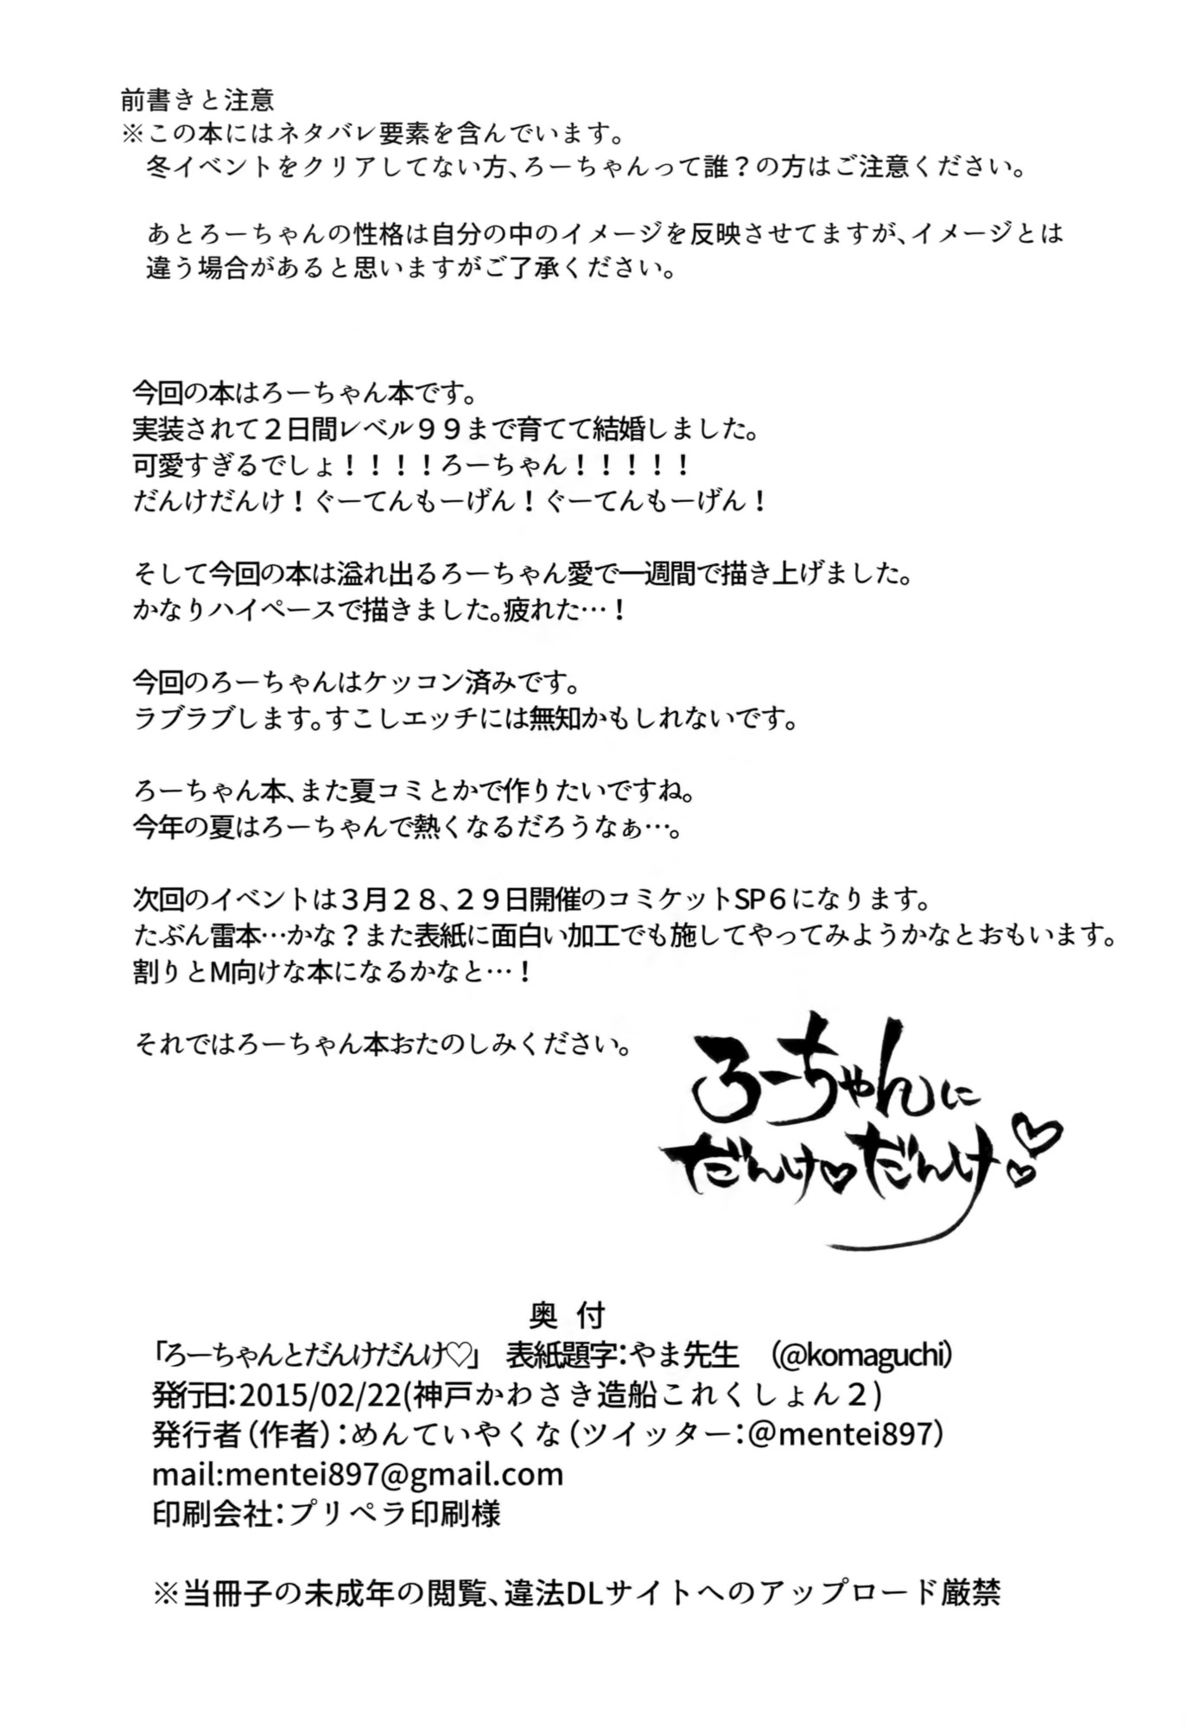 前書きと注意
※この本にはネタバレ要素を含んでいます。
冬イベントをクリアしてない方、ろーちゃんって誰？の方はご注意ください。
あとろーちゃんの性格は自分の中のイメージを反映させてますが、イメージとは
違う場合があると思いますがご了承ください。
今回の本はろーちゃん本です。
実装されて２日間レベル９９まで育てて結婚しました。
可愛すぎるでしょ！！！！ろーちゃん！！！！！
だんけだんけ！ぐーてんもーげん！ぐーてんもーげん！
そして今回の本は溢れ出るろーちゃん愛で一週間で描き上げました。
かなりハイペースで描きました。疲れた…！
今回のろーちゃんはケッコン済みです。
ラブラブします。すこしエッチには無知かもしれないです。
ろーちゃん本、また夏コミとかで作りたいですね。
今年の夏はろーちゃんで熱くなるだろうなぁ…。
次回のイベントは３月２８、２９日開催のコミケットSP６になります。
たぶん雷本…かな？また表紙に面白い加工でも施してやってみようかなとおもいます。
割りとM向けな本になるかなと…！
それではろーちゃん本おたのしみください。
ろーちゃんに
だんけ♡だんけ♡
奥付
「ろーちゃんとだんけだんけ♡」 表紙題字：やま先生 （@komaguchi）
発行日：2015/02/22(神戸かわさき造船これくしょん２)
発行者（作者）：めんていやくな（ツイッター：@mentei897）
mail:mentei897@gmail.com
印刷会社：プリペラ印刷様
※当冊子の未成年の閲覧、違法DLサイトへのアップロード厳禁